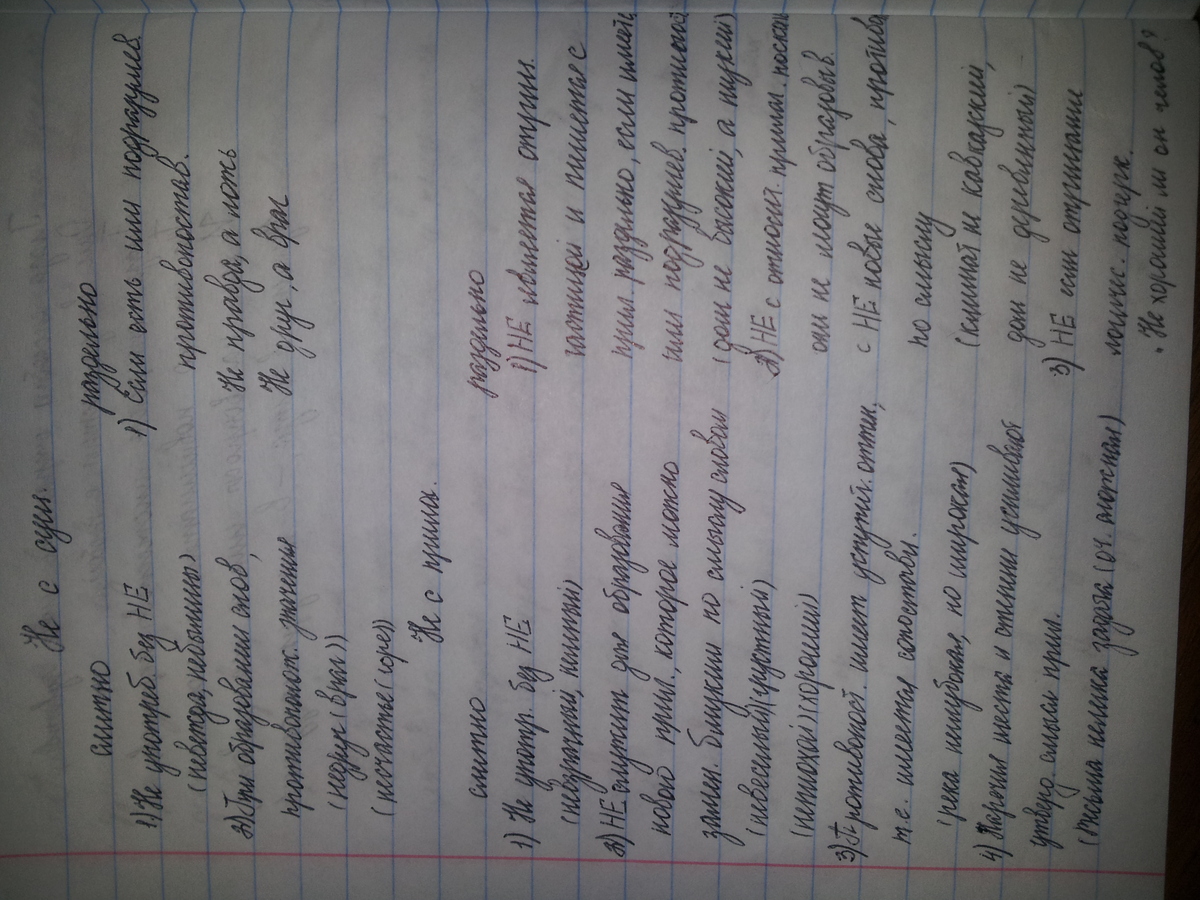 Не с сущ.
слитно
1) Не употреб. без НЕ
(невежда, небылица)
2) При образовании слов,
противополож. значения
(недруг (враг))
(несчастье (горе))
раздельно
1) Если есть или подразумев.
противопостав.
Не правда, а ложь
Не друг, а враг
Не с прилаг.
слитно
1) Не употр. без НЕ
2) НЕ служит для образования
нового прил., которое можно
замен. близким по смыслу словом
(невесёлый)(грустный)
(неплохой)(хороший)
3) Противопост. имеет уступит. оттен,
т.е. имеется сопоставл.
(река неглубокая, но широкая)
4) Наречия места и степени усиливают
утверд. смысл прил.
(весьма нелегка задача (оч. сложная)
раздельно
1) НЕ является отриц.
частицей и пишется с
прил. раздельно, если имеется
или подразумев. противопост
(дом не высокий, а низкий)
2) НЕ с относит. прилаг. поскол
они не могут образовыв.
с НЕ новые слова, противоп
по смыслу
(климат не кавказский,
дом не деревянный)
3) НЕ если отрицание
логичес. подчерк.
"Не хороший ли он челов?